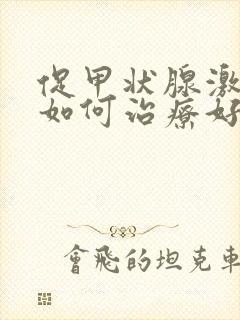 促甲状腺激
如何治療好
會飛的坦克車